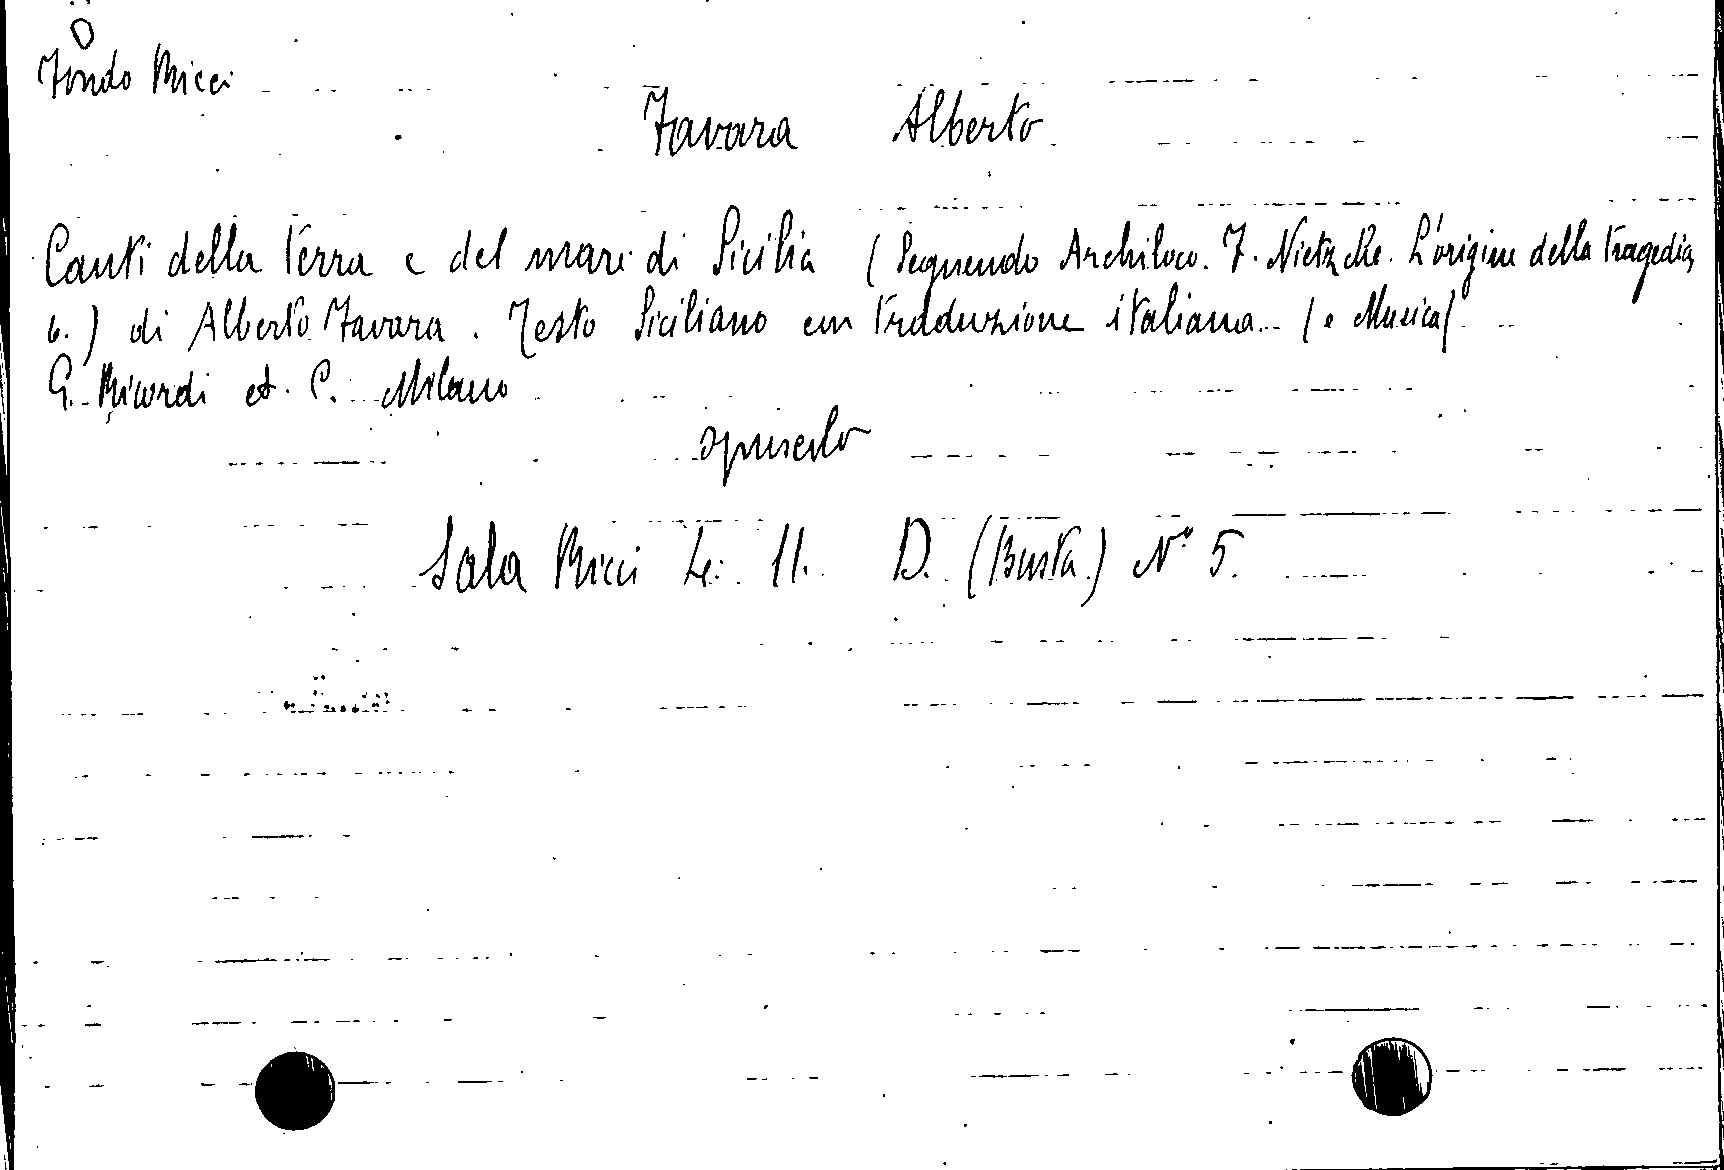 Fondo Ricci
Favara Alberto
Canti della terra e del mare di Sicilia (Seguendo Archiloco. F. Nietzche. L'origine della tragedia
6.) di Alberto Favara. Testo Siciliano con traduzione italiana (e Musica)
G. Ricordi et. C. Milano
opuscolo
Sala Ricci Le: 11. D. (Busta) N° 5.